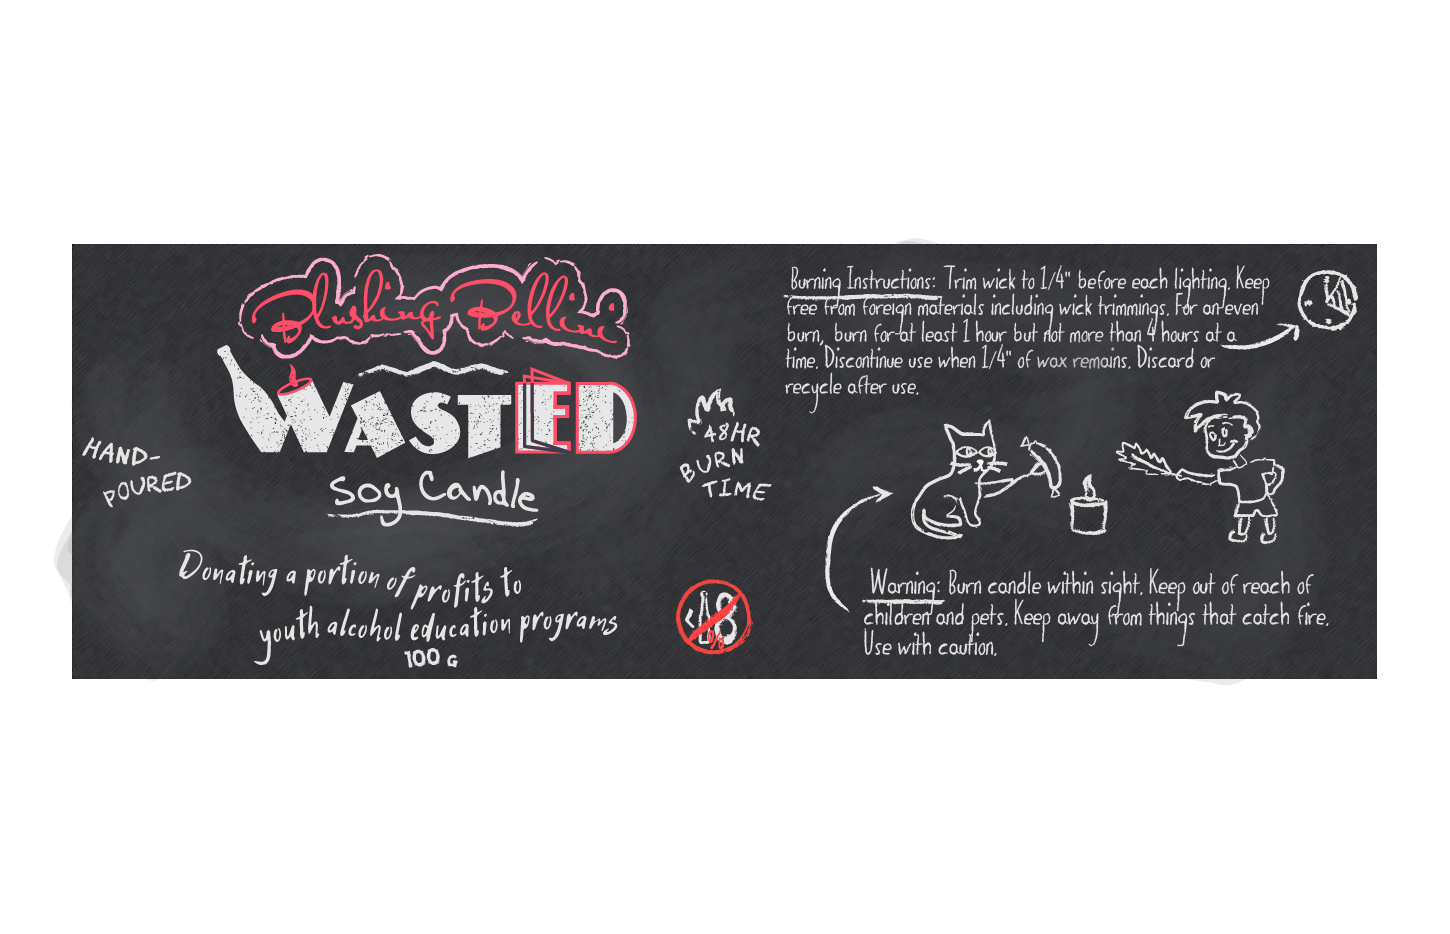 Blushing Bellini
WASTED
Soy Candle
HAND-
POURED
48HR
BURN
TIME
Donating a portion of profits to
youth alcohol education programs
100 G
<18
%
Burning Instructions: Trim wick to 1/4" before each lighting. Keep
free from foreign materials including wick trimmings. For an even
burn, burn for at least 1 hour but not more than 4 hours at a
time. Discontinue use when 1/4" of wax remains. Discard or
recycle after use.
Warning: Burn candle within sight. Keep out of reach of
children and pets. Keep away from things that catch fire.
Use with caution.